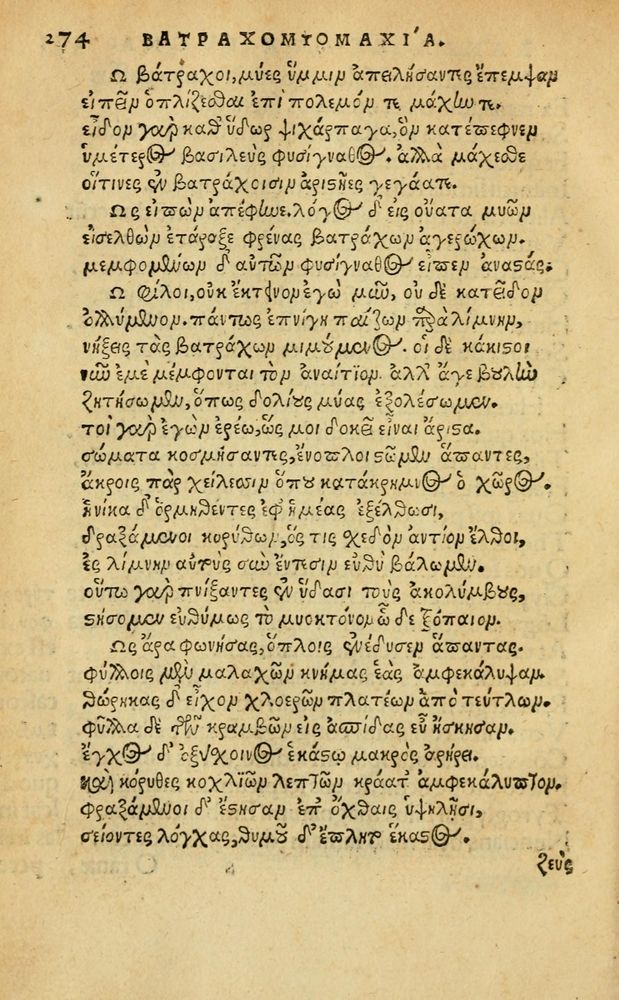 274 ΒΑΤΡΑΧΟΜΥΟΜΑΧΙ´Α.
Ω βάτραχοι, μύες ὔμμιν ἀπειλήσαντες ἔπεμψαν
εἰπεῖν ὁπλίζεσθαι ἐπὶ πόλεμόν τε μάχην τε.
εἶδον γὰρ καθ' ὕδωρ ψιχάρπαγα, ὃν κατέπεφνεν
ὑμέτερος βασιλεὺς φυσίγναθος. ἀλλὰ μάχεσθε
οἵτινες ἐν βατράχοισιν ἀριστῆες γεγάατε.
Ως εἰπὼν ἀπέφηνε. λόγος δ' εἰς οὔατα μυῶν
εἰσελθὼν ἐτάραξε φρένας βατράχων ἀγερώχων.
μεμφομένων δ' αὐτῶν φυσίγναθος εἶπεν ἀναστάς.
Ω φίλοι, οὐκ ἔκτεινον ἐγὼ μῦν, οὐδὲ κατεῖδον
ὀλλύμενον. πάντως ἐπνίγη παίζων παρὰ λίμνην,
νήξεις τὰς βατράχων μιμούμενος. οἱ δὲ κάκιστοι
νῦν ἐμὲ μέμφονται τὸν ἀναίτιον. ἀλλ' ἄγε βουλὴν
ζητήσωμεν, ὅπως δολίους μύας ἐξολέσωμεν.
τοὶ γὰρ ἐγὼν ἐρέω, ὥς μοι δοκεῖ εἶναι ἄριστα.
σώματα κοσμήσαντες, ἔνοπλοι στῶμεν ἅπαντες,
ἄκροις πὰρ χείλεσιν ὅπου κατάκρημνος ὁ χῶρος.
ἡνίκα δ' ὁρμηθέντες ἐφ' ἡμέας ἐξέλθωσι,
δραξάμενοι κορύθων, ὅς τις σχεδὸν ἀντίον ἔλθοι,
ἐς λίμνην αὐτοὺς σὺν ἔντεσιν εὐθὺ βάλωμεν.
οὕτω γὰρ πνίξαντες ἐν ὕδασι τοὺς ἀκολύμβους,
στήσομεν εὐθύμως τὸ μυοκτόνον ὧδε τρόπαιον.
Ως ἄρα φωνήσας, ὅπλοις ἐνέδυσεν ἅπαντας.
φύλλοις μὲν μαλαχῶν κνήμας ἑὰς ἀμφεκάλυψαν.
θώρηκας δ' εἶχον χλοερῶν πλατέων ἀπὸ τεύτλων.
φύλλα δὲ τῶν κραμβῶν εἰς ἀσπίδας εὖ ἤσκησαν.
ἔγχος δ' ὀξύσχοινος ἑκάστῳ μακρὸς ἀρήρει.
καὶ κόρυθες κοχλιῶν λεπτῶν κράατ' ἀμφεκάλυπτον.
φραξάμενοι δ' ἔστησαν ἐπ' ὄχθαις ὑψηλῇσι,
σείοντες λόγχας, θυμοῦ δ' ἔπλητο ἕκαστος.
ζεὺς